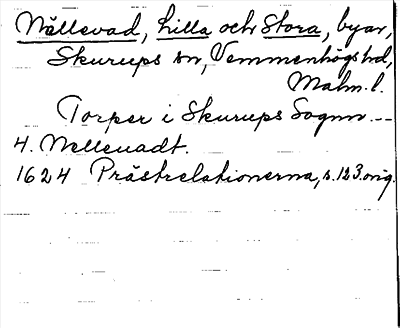 Nällevad, Lilla och Stora, byar,
Skurups sn, Vemmenhögs hd,
Malm. l.
Torper i Skurups Sognn ---
4. Nelleuadt.
1624 Prästrelationerna, s. 123. orig.